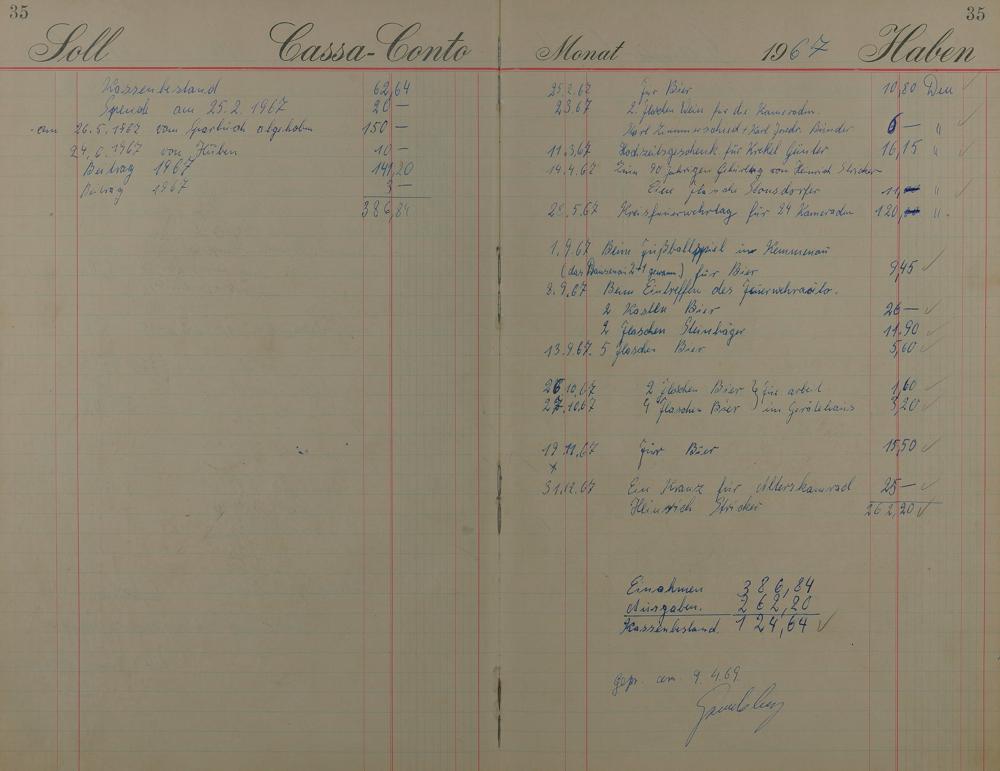 35
Soll Cassa-Conto
Kassenbestand 62,64
Spende am 25.2.1967 20 —
am 26.5.1967 vom Sparbuch abgehoben 150 —
24.6.1967 von Huben 10 —
Beitrag 1967 141,20
Beitrag 1967 3 —
386,84
35
Monat 1967 Haben
25.2.67 für Bier 10,80 Dm
2.3.67 2 Flaschen Wein für die Kameraden
Karl Kimmerschied + Karl Josef Bünder 6 — "
11.3.67 Hochzeitsgeschenk für Krekel Günter 16,15 "
19.4.67 Zum 90 jährigen Geburtstag von Heinrich Stricker
Eine Flasche Stonsdorfer 11, "
28.5.67 Kreisfeuerwehrtag für 24 Kameraden 120, "
1.9.67 Beim Fußballspiel in Kemmenau
(das Dausenau 2+1 gewann) für Bier 9,45
8.9.67 Beim Eintreffen des Feuerwehrauto.
2 Kasten Bier 26 —
2 Flaschen Steinhäger 11,90
13.9.67. 5 Flaschen Bier 5,60
26.10.67 2 Flaschen Bier für arbeit 1,60
27.10.67 4 Flaschen Bier im Gerätehaus 3,20
19.11.67 Für Bier 15,50
31.12.67 Ein Kranz für Alterskamerad 25 —
Heinrich Stricker 262,20
Einahmen 386,84
Ausgaben. 262,20
Kassenbestand 124,64
gepr. am 9.4.69.